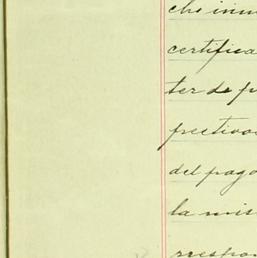 che inm
certifica
ter de p
pectivos
del pago
la mis
rrespon